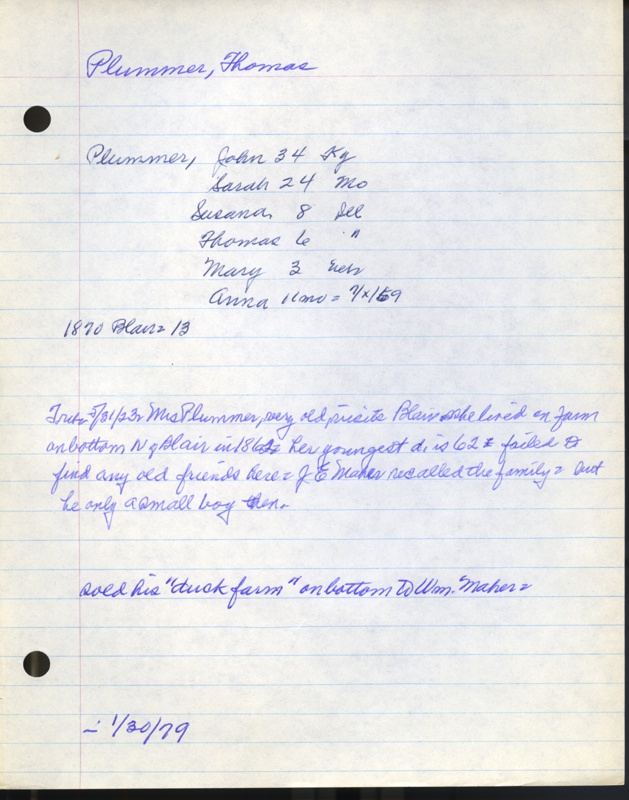 Plummer, Thomas
Plummer, John 34 Ky
Sarah 24 Mo
Susana 8 Ill
Thomas 6 "
Mary 3 Neb
Anna 11mo = 7/x/69
1870 Blair = 13
Trib= 5/31/23= Mrs Plummer, very old, visits Blair she lived on farm
on bottom N of Blair in 186 = her youngest d. is 62 = failed to
find any old friends here = J E Maher recalled the family = but
he only a small boy then.
sold his "tusk farm" on bottom to Wm. Maher =
- 1/30/79